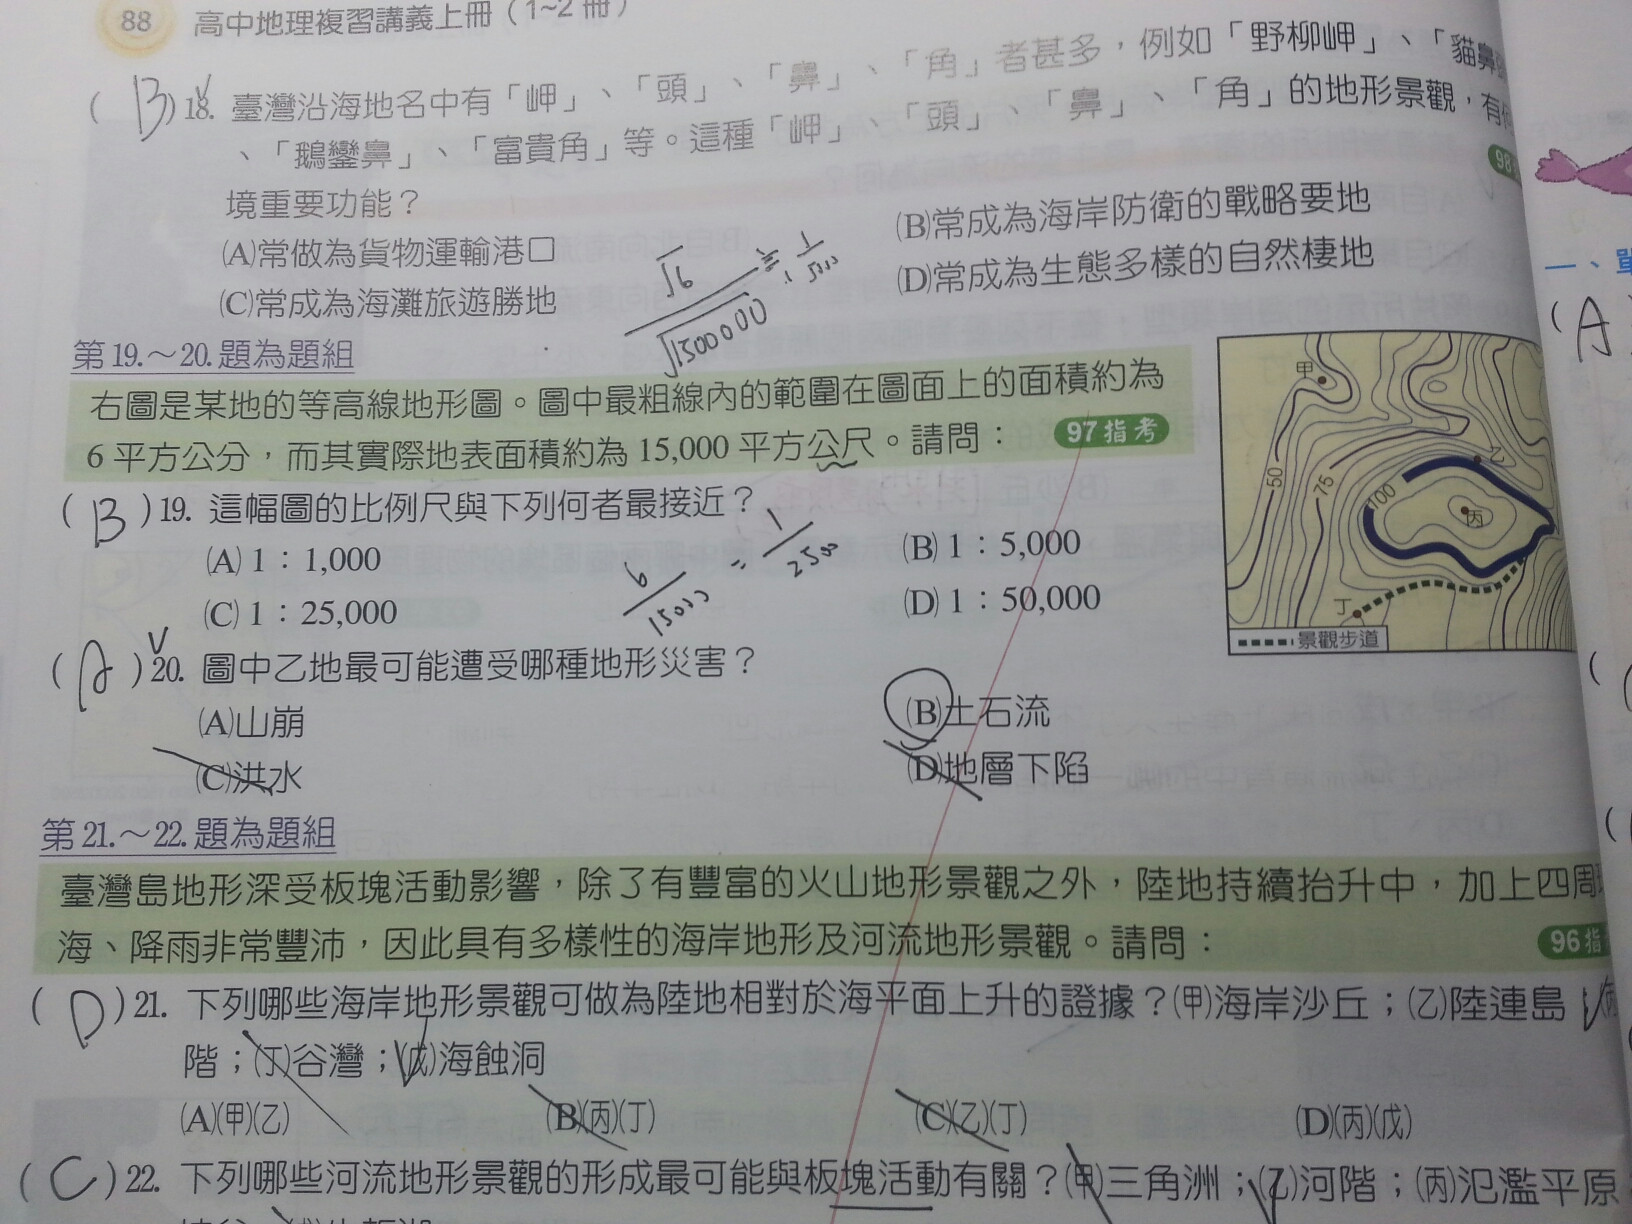 88 高中地理複習講義上冊(1~2冊)
(B)18. 臺灣沿海地名中有「岬」、「頭」、「鼻」、「角」者甚多，例如「野柳岬」、「貓鼻頭
、「鵝鑾鼻」、「富貴角」等。這種「岬」、「頭」、「鼻」、「角」的地形景觀，有何
境重要功能？ 98
(A)常做為貨物運輸港口 (B)常成為海岸防衛的戰略要地
(C)常成為海灘旅遊勝地 (D)常成為生態多樣的自然棲地
√6 / √1500000 = 1/5000
第19.～20.題為題組
右圖是某地的等高線地形圖。圖中最粗線內的範圍在圖面上的面積約為
6平方公分，而其實際地表面積約為15,000平方公尺。請問： 97指考
甲
乙
丙
丁
50
75
100
景觀步道
(B)19. 這幅圖的比例尺與下列何者最接近？
(A) 1：1,000 (B) 1：5,000
(C) 1：25,000 (D) 1：50,000
6/15000 = 1/2500
(A)20. 圖中乙地最可能遭受哪種地形災害？
(A)山崩 (B)土石流
(C)洪水 (D)地層下陷
第21.～22.題為題組
臺灣島地形深受板塊活動影響，除了有豐富的火山地形景觀之外，陸地持續抬升中，加上四周環
海、降雨非常豐沛，因此具有多樣性的海岸地形及河流地形景觀。請問： 96指
(D)21. 下列哪些海岸地形景觀可做為陸地相對於海平面上升的證據？(甲)海岸沙丘；(乙)陸連島
階；(丁)谷灣；(戊)海蝕洞
(A)(甲)(乙) (B)(丙)(丁) (C)(乙)(丁) (D)(丙)(戊)
(C)22. 下列哪些河流地形景觀的形成最可能與板塊活動有關？(甲)三角洲；(乙)河階；(丙)氾濫平原
一、單
(A)